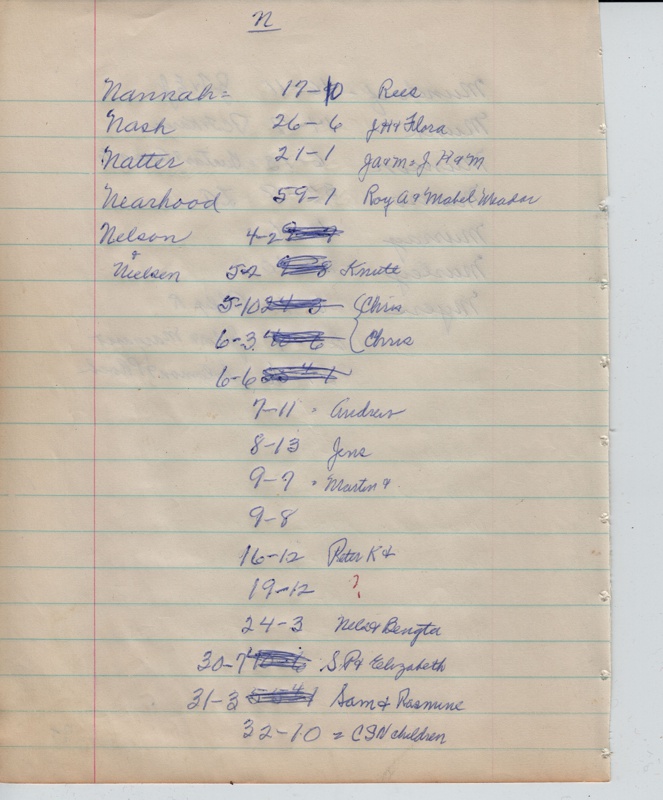 N
Nannah = 17-10 Rees
Nash 26-6 J H & Flora
Natter 21-1 J a & m = J. H & M
Nearhood 59-1 Roy A & Mabel Meador
Nelson 4-2
& Nielsen 5-2 Knute
5-10 Chris
6-3 Chris
6-6
7-11 - Andrew
8-13 Jens
9-7 - Martin &
9-8
16-12 Peter K &
19-12 ?
24-3 Nels & Bengta
30-7 S.P. & Elizabeth
31-3 Sam & Rasmine
32-10 = C S N children